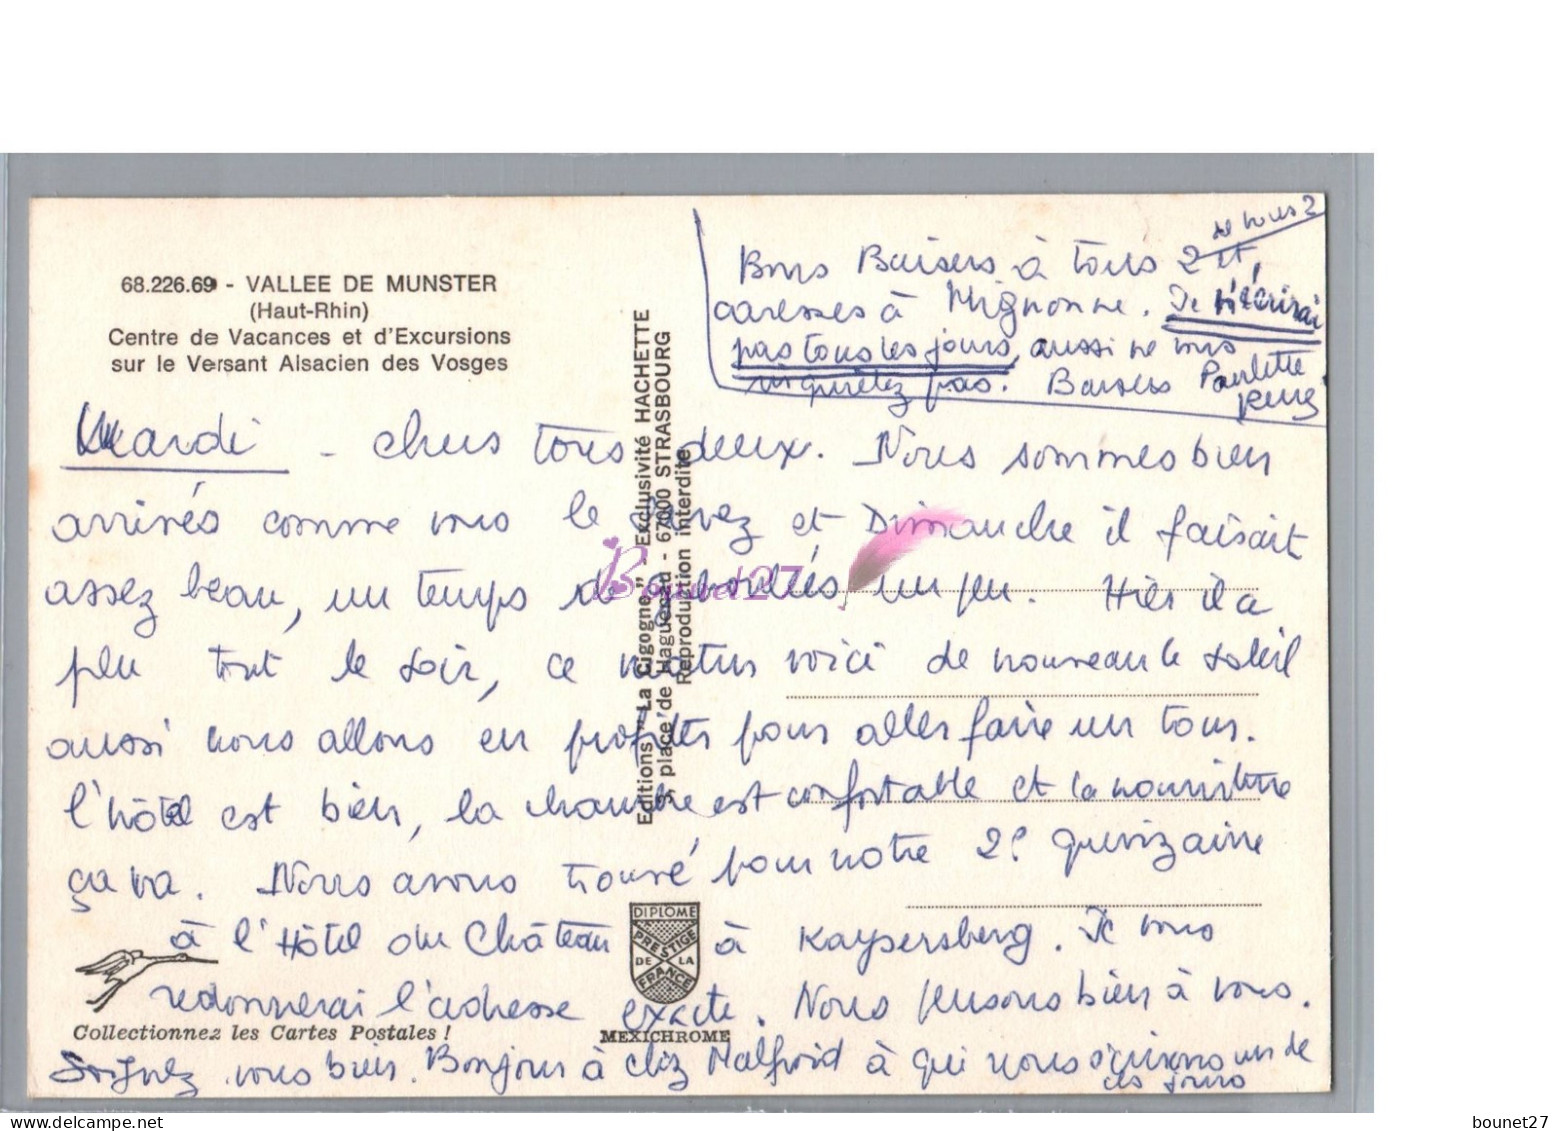 68.226.69 - VALLEE DE MUNSTER
(Haut-Rhin)
Centre de Vacances et d'Excursions
sur le Versant Alsacien des Vosges
de nous 2
Bons Baisers à tous 2 et
caresses à Mignonne. Je n'écrirai
pas tous les jours, aussi ne vous
inquiétez pas. Baisers Paulette
René
Mardi - chers tous deux. Nous sommes bien
arrivés comme vous le savez et Dimanche il faisait
assez beau, un temps de giboulées un peu. Hier il a
plu tout le soir, ce matin voici de nouveau le soleil
aussi nous allons en profiter pour aller faire un tour.
l'hôtel est bien, la chambre est confortable et la nourriture
ça va. Nous avons trouvé pour notre 2e quinzaine
à l'Hôtel du Château à Kaysersberg. Je vous
redonnerai l'adresse exacte. Nous pensons bien à vous.
Soignez vous bien. Bonjour à chez Malfroid à qui nous écrirons un de
ces jours
Editions "La Cigogne" - Exclusivité HACHETTE
place de Haguenau - 67000 STRASBOURG
Reproduction interdite
DIPLOME
PRESTIGE
DE LA
FRANCE
MEXICHROME
Collectionnez les Cartes Postales !
Bounet27
bounet27